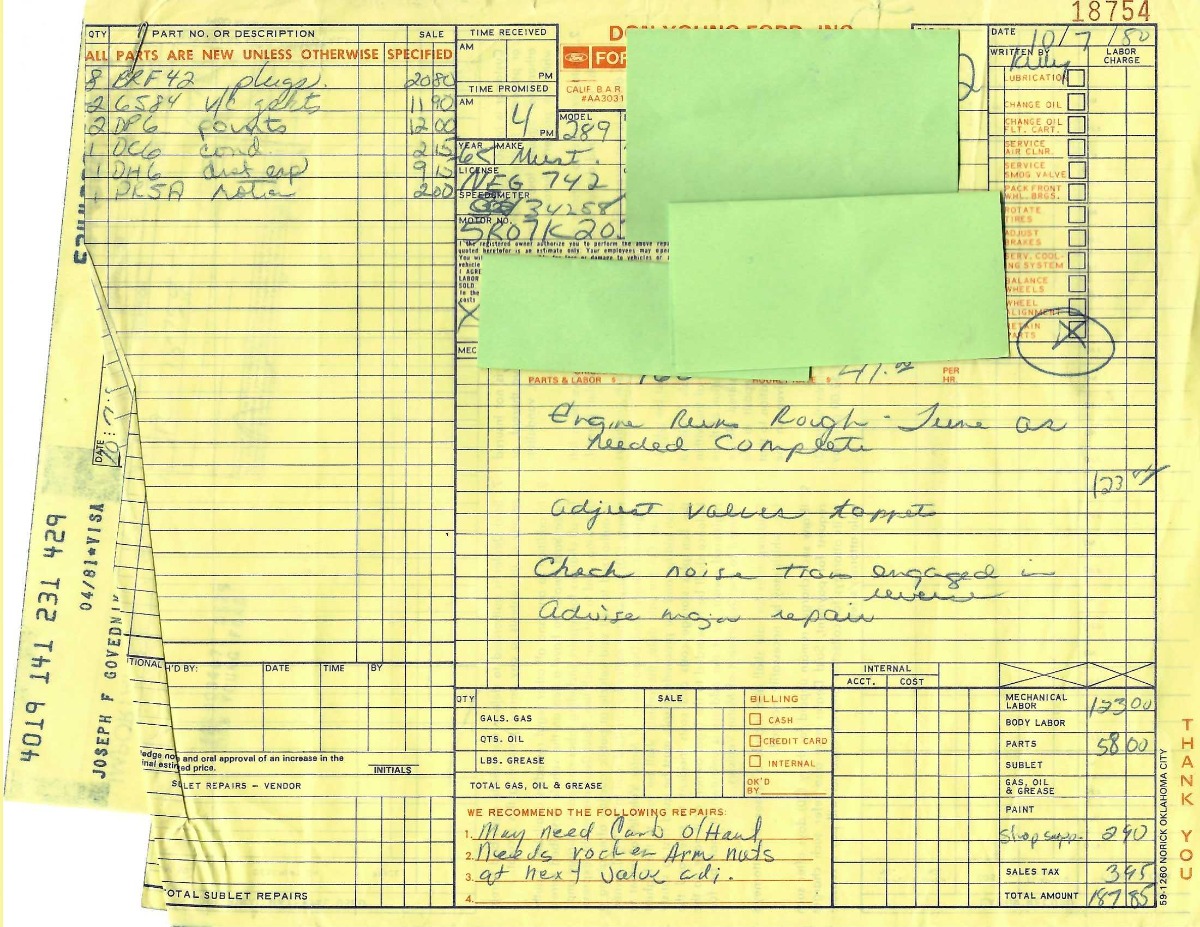 18754
QTY PART NO. OR DESCRIPTION SALE
ALL PARTS ARE NEW UNLESS OTHERWISE SPECIFIED
8 BRF42 plugs. 20 80
2 6584 v/c gskts 11 90
2 DP6 points 12 00
1 DC6 cond. 2 15
1 DH6 dist cap 9 15
1 rotor 2 00
TIME RECEIVED
AM
PM
TIME PROMISED
AM
4 PM
DON YOUNG FORD, INC.
Ford
CALIF. B.A.R.
#AA3031
MODEL
289
YEAR MAKE
65 Must.
LICENSE
NEG 742
SPEEDOMETER
34258
MOTOR NO.
5R07K20
I the registered owner authorize you to perform the above
quoted heretofor is an estimate only. Your employees may
You wil
vehicle
I AGRE
LABOR
SOLD
to the
costs
X
MEC
DATE 10/7/80
WRITTEN BY
LABOR CHARGE
LUBRICATION
CHANGE OIL
CHANGE OIL
FLT. CART.
SERVICE
AIR CLNR.
SERVICE
SMOG VALVE
PACK FRONT
WHL. BRGS.
ROTATE
TIRES
ADJUST
BRAKES
SERV. COOL-
ING SYSTEM
BALANCE
WHEELS
WHEEL
ALIGNMENT
RETAIN
PARTS X
PARTS & LABOR $ $ 41.00 PER HR
Engine Runs Rough - Tune as
needed Complete
123
Adjust valves tappets
Check noise trans engaged in
reverse
Advise major repair
DATE
4019 141 231 429
04/81*VISA
JOSEPH F GOVEDNI
TIONAL
H'D BY: DATE TIME BY
edge no and oral approval of an increase in the
inal estim ed price.
INITIALS
SUBLET REPAIRS – VENDOR
TOTAL SUBLET REPAIRS
QTY SALE
GALS. GAS
QTS. OIL
LBS. GREASE
TOTAL GAS, OIL & GREASE
BILLING
CASH
CREDIT CARD
INTERNAL
OK'D
BY
INTERNAL
ACCT. COST
WE RECOMMEND THE FOLLOWING REPAIRS:
1. May need Carb O/Haul
2. Needs rocker Arm nuts
3. at next valve adj.
4.
MECHANICAL
LABOR 123 00
BODY LABOR
PARTS 58 00
SUBLET
GAS, OIL
& GREASE
PAINT
Shop supp. 2 90
SALES TAX 3 95
TOTAL AMOUNT 187 85
59-1260 NORICK OKLAHOMA CITY
THANK YOU